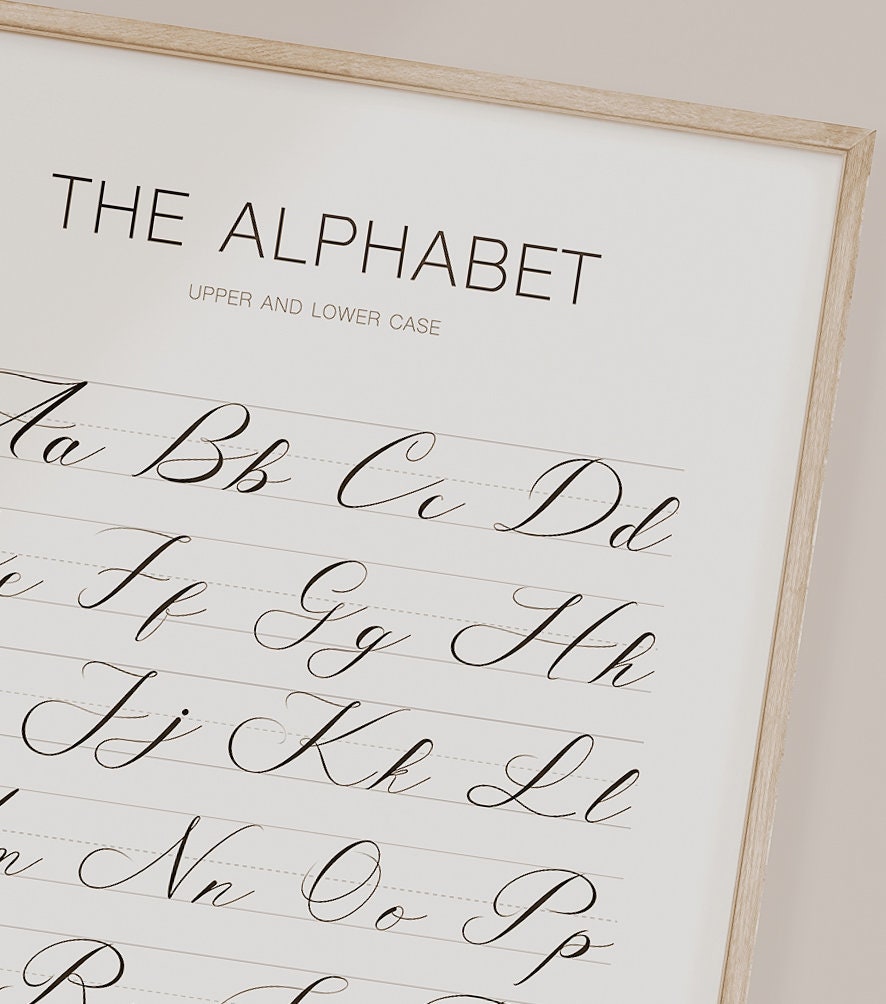 THE ALPHABET
UPPER AND LOWER CASE
Aa Bb Cc Dd
e Ff Gg Hh
Jj Kk Ll
n Nn Oo Pp
R